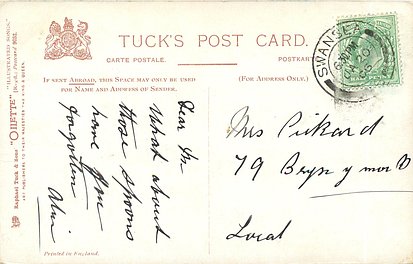 TUCK'S POST CARD.
CARTE POSTALE.
POSTKART
IF SENT ABROAD, THIS SPACE MAY ONLY BE USED
FOR NAME AND ADDRESS OF SENDER.
(FOR ADDRESS ONLY.)
SWANSEA
Raphael Tuck & Sons' "OILETTE" "ILLUSTRATED SONGS."
ART PUBLISHERS TO THEIR MAJESTIES THE KING & QUEEN.
Dear Mr
What about
those spoons
have
forgotten
Mrs Pickard
79 Bryn y mor
Local
Printed in England.